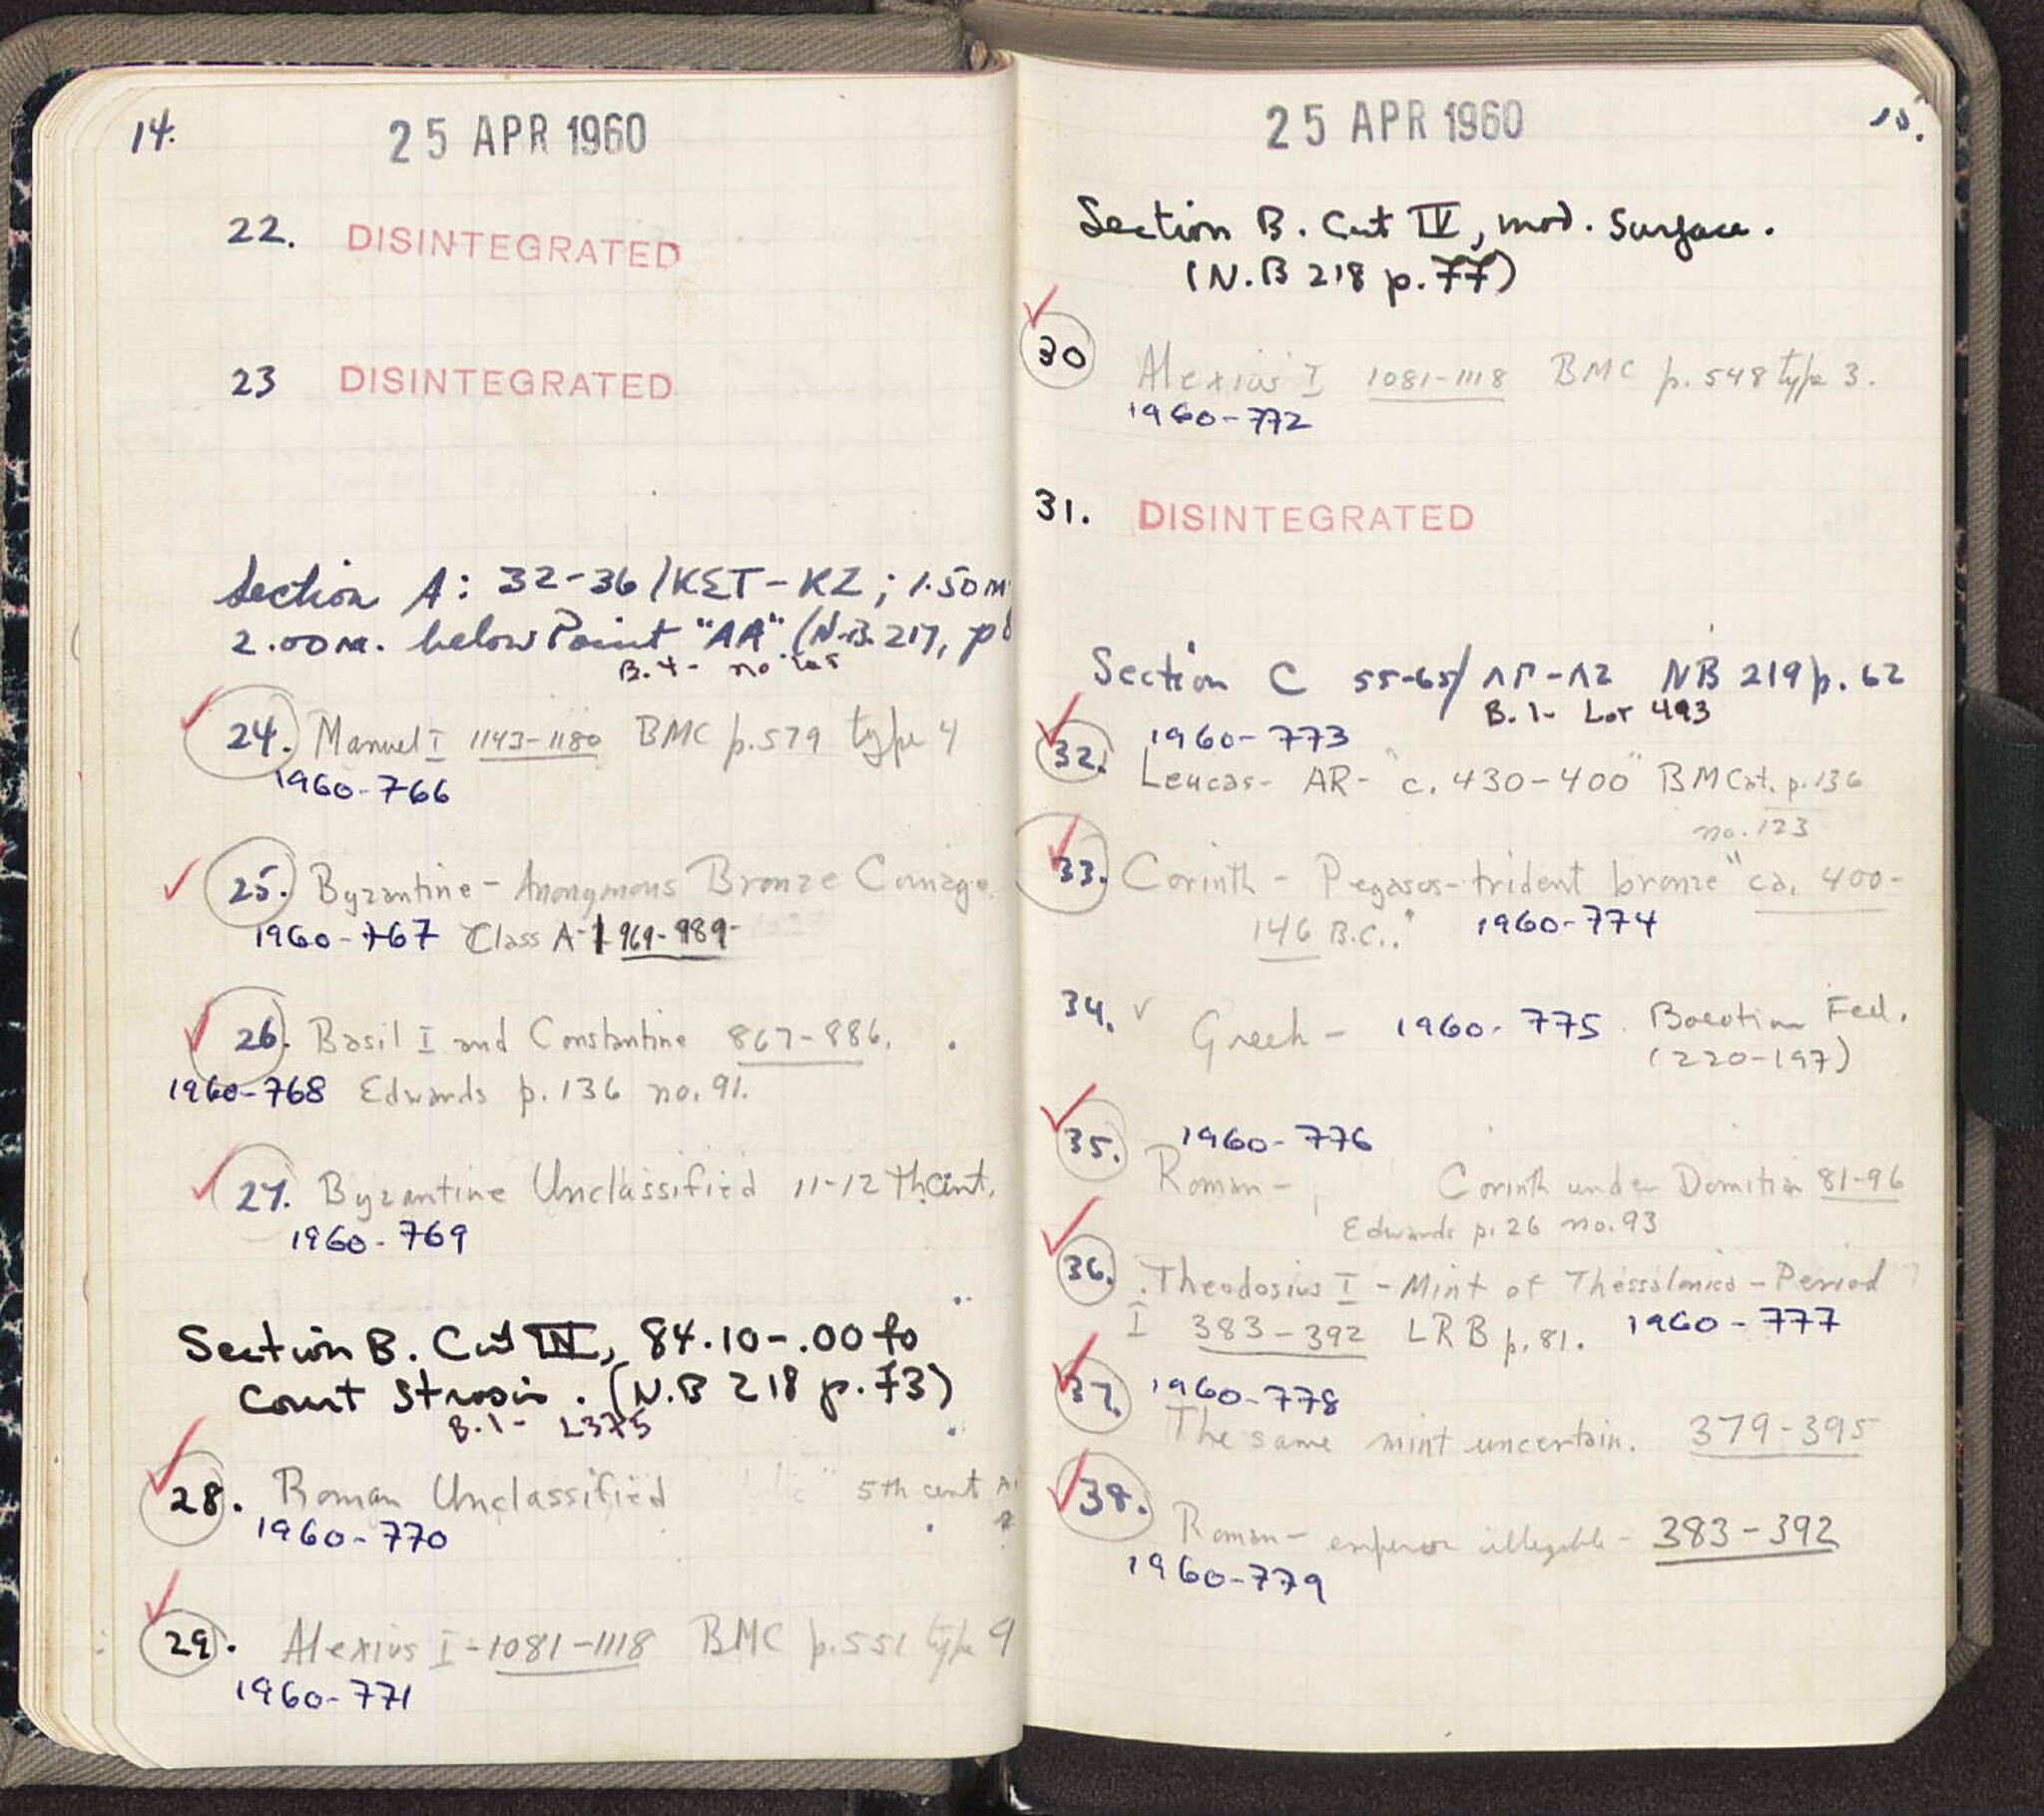 14.
25 APR 1960
22. DISINTEGRATED
23 DISINTEGRATED
Section A: 32-36/KΣT-KZ; 1.50m
2.00m. below Point "AA" (N.B. 217, p
B.4- no
24. Manuel I 1143-1180 BMC p.579 type 4
1960-766
25. Byzantine - Anonymous Bronze Coinage
1960-767 Class A-1 969-989-
26. Basil I and Constantine 867-886.
1960-768 Edwards p. 136 no. 91.
27. Byzantine Unclassified 11-12 th cent.
1960-769
Section B. Cut IV, 84.10-.00 to
Court Strosis. (N.B 218 p. 73)
B.1- L375
28. Roman Unclassified 5th cent A.
1960-770
29. Alexius I-1081-1118 BMC p.551 type 9
1960-771
15.
25 APR 1960
Section B. Cut IV, mod. Surface.
(N.B 218 p. 77)
30 Alexius I 1081-1118 BMC p. 548 type 3.
1960-772
31. DISINTEGRATED
Section C 55-65/ΛΓ-ΛΖ NB 219 p. 62
B.1- Lot 493
1960-773
32. Leucas- AR- "c. 430-400" BMCat. p. 136
no. 123
33. Corinth - Pegasos-trident bronze "ca. 400-
146 B.C.." 1960-774
34. Greek - 1960-775 Boeotian Fed.
(220-197)
1960-776
35. Roman - Corinth under Domitian 81-96
Edwards p. 26 no. 93
36. Theodosius I - Mint of Thessalonica - Period
I 383-392 LRB p. 81. 1960-777
37. 1960-778
The same mint uncertain. 379-395
38. Roman - emperor illegible - 383-392
1960-779